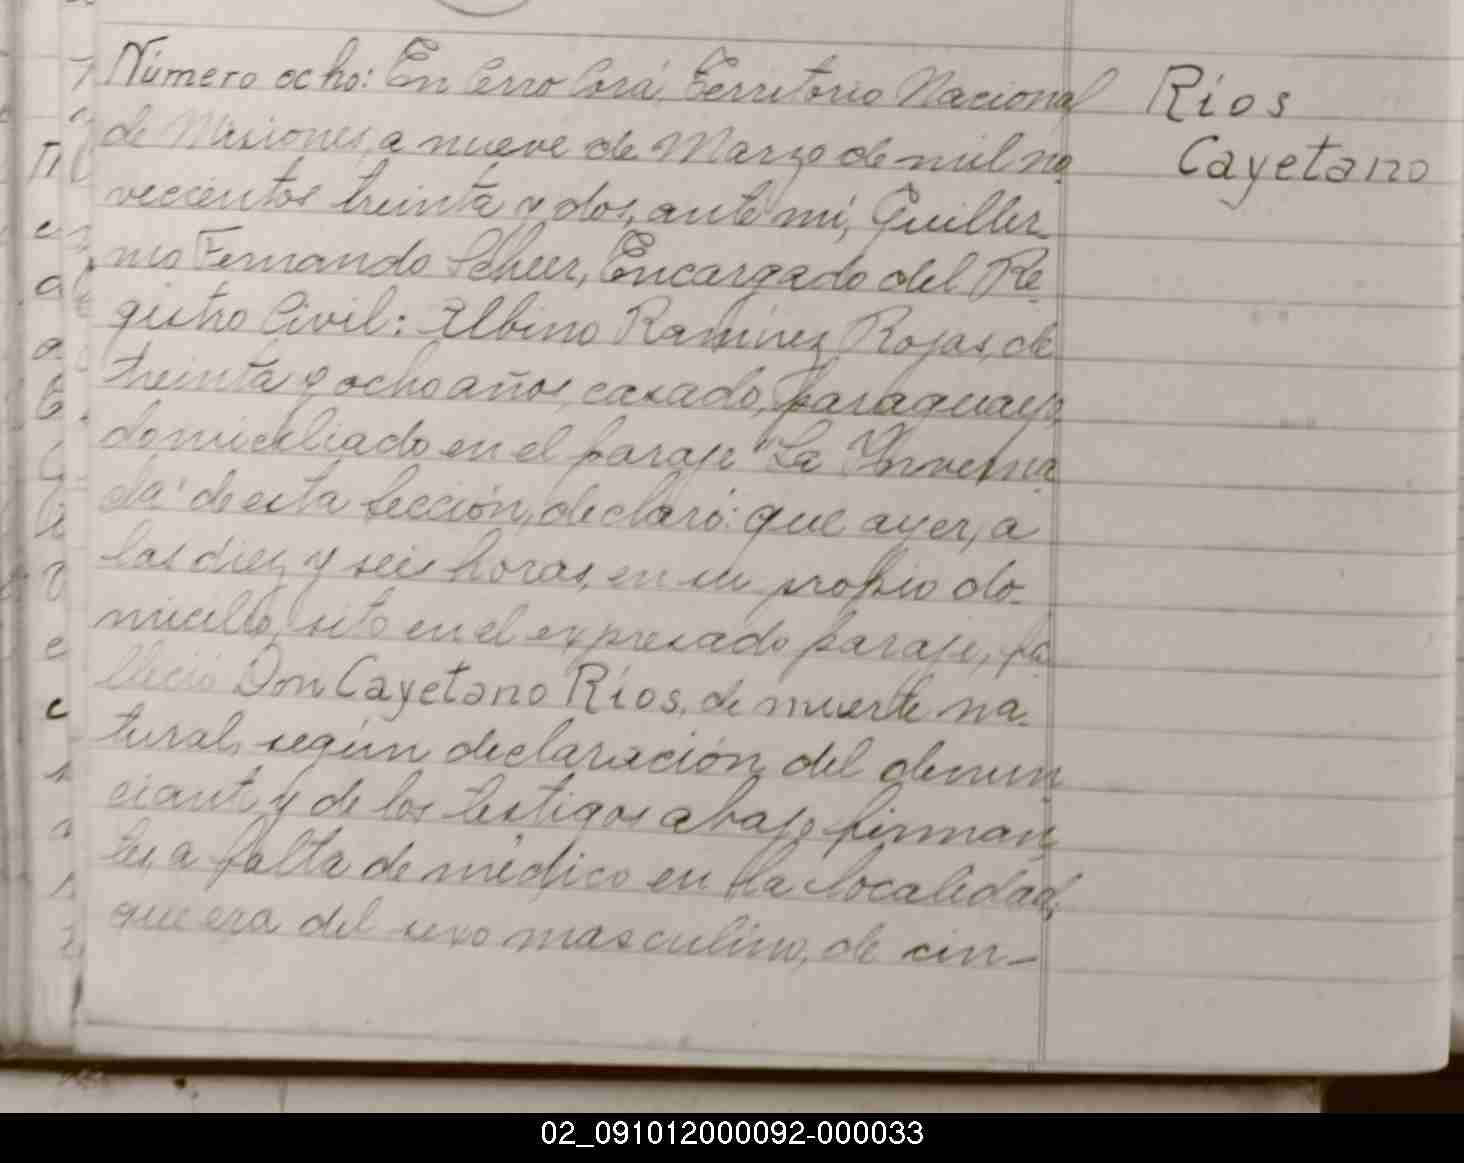 Número ocho: En Cerro Corá, Territorio Nacional
de Misiones, a nueve de Marzo de mil no
vecientos treinta y dos, ante mí, Guiller
mo Fernando Scheer, Encargado del Re
gistro Civil: Albino Ramírez Rojas, de
treinta y ocho años, casado, paraguayo,
domiciliado en el paraje "La Inverna
da" de esta Sección, declaró: que ayer, a
las diez y seis horas, en su propio do-
micilio, sito en el expresado paraje, fa
lleció Don Cayetano Ríos, de muerte na-
tural, según declaración del denun
ciante y de los testigos abajo firman
tes, a falta de médico en la localidad,
que era del sexo masculino, de cin-
Ríos
Cayetano
02_091012000092-000033